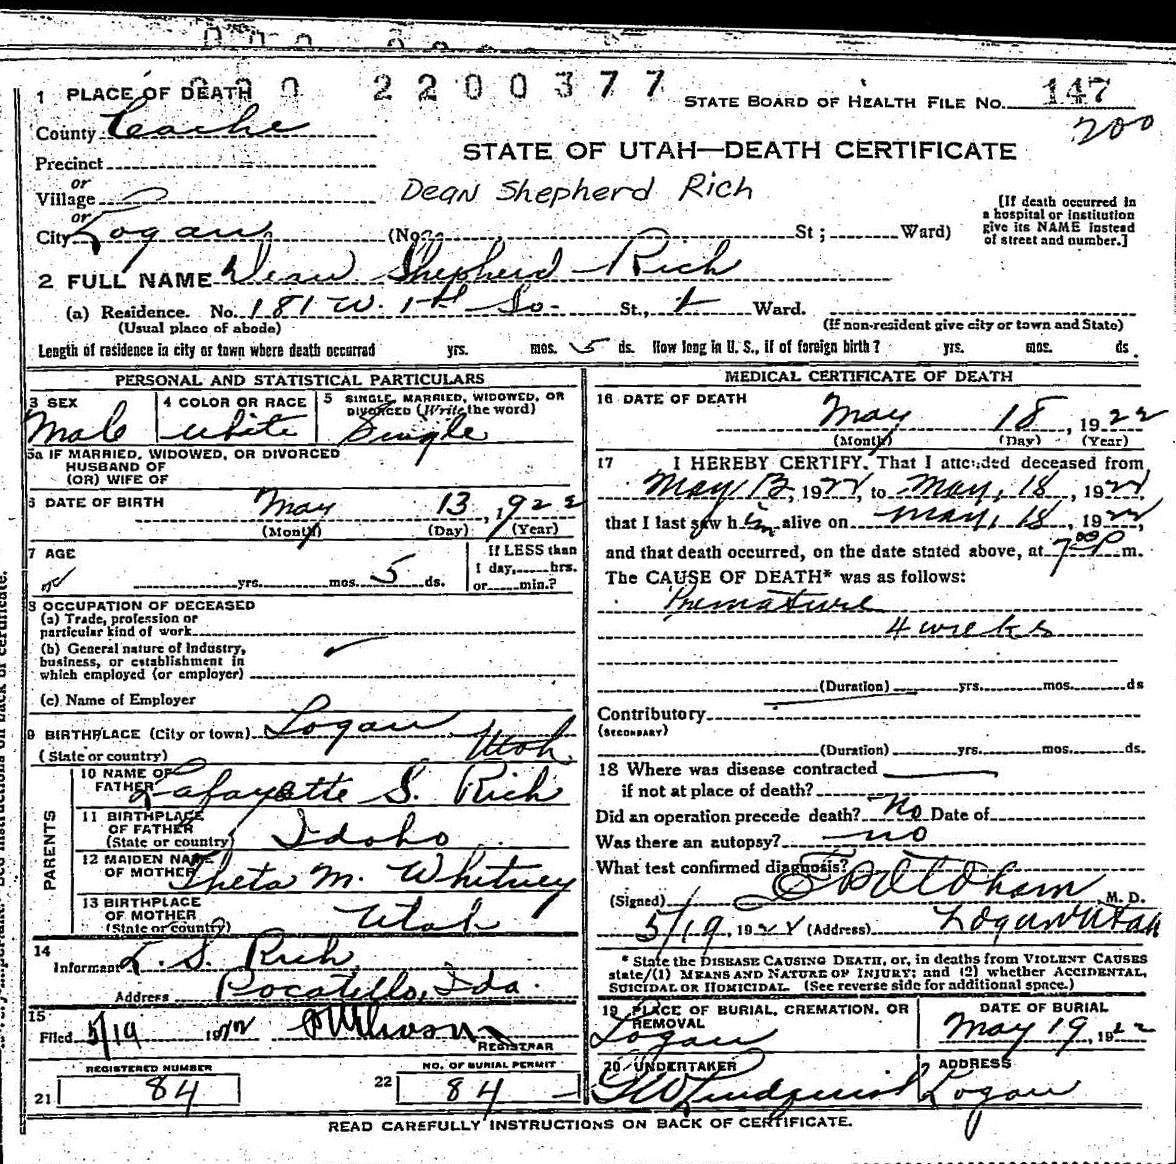 000 2200377
1 PLACE OF DEATH
STATE BOARD OF HEALTH FILE No. 147
200
County Cache
Precinct
STATE OF UTAH—DEATH CERTIFICATE
or
Village
Dean Shepherd Rich
or
City Logan (No. St; Ward)
[If death occurred in
a hospital or institution
give its NAME instead
of street and number.]
2 FULL NAME Dean Shepherd Rich
(a) Residence. No. 181 W. 1st So. St., Ward.
(Usual place of abode)
(If non-resident give city or town and State)
Length of residence in city or town where death occurred yrs. mos. 5 ds. How long in U. S., if of foreign birth? yrs. mos. ds.
PERSONAL AND STATISTICAL PARTICULARS
3 SEX
Male
4 COLOR OR RACE
White
5 SINGLE, MARRIED, WIDOWED, OR
DIVORCED (Write the word)
Single
5a IF MARRIED, WIDOWED, OR DIVORCED
HUSBAND OF
(OR) WIFE OF
6 DATE OF BIRTH
May 13, 1922
(Month) (Day) (Year)
7 AGE
yrs. mos. 5 ds.
If LESS than
1 day, hrs.
or min.?
8 OCCUPATION OF DECEASED
(a) Trade, profession or
particular kind of work
(b) General nature of Industry,
business, or establishment in
which employed (or employer)
(c) Name of Employer
9 BIRTHPLACE (City or town) Logan
(State or country) Utah
PARENTS
10 NAME OF
FATHER Lafayette S. Rich
11 BIRTHPLACE
OF FATHER
(State or country) Idaho
12 MAIDEN NAME
OF MOTHER Theta M. Whitney
13 BIRTHPLACE
OF MOTHER
(State or country) Utah
14
Informant L. S. Rich
Address Pocatello, Ida.
15
Filed 5/19 1922
REGISTRAR
REGISTERED NUMBER
21 84
NO. OF BURIAL PERMIT
22 84
MEDICAL CERTIFICATE OF DEATH
16 DATE OF DEATH
May 18, 1922
(Month) (Day) (Year)
17 I HEREBY CERTIFY. That I attended deceased from
May 13, 1922, to May, 18, 1922,
that I last saw him alive on May, 18, 1922,
and that death occurred, on the date stated above, at 7:00 P m.
The CAUSE OF DEATH* was as follows:
Premature
4 weeks
(Duration) yrs. mos. ds
Contributory
(SECONDARY)
(Duration) yrs. mos. ds.
18 Where was disease contracted
if not at place of death?
Did an operation precede death? No Date of
Was there an autopsy? no
What test confirmed diagnosis?
(Signed) Oldham M. D.
5/19, 1922 (Address) Logan Utah
* State the DISEASE CAUSING DEATH, or, in deaths from VIOLENT CAUSES
state (1) MEANS AND NATURE OF INJURY; and (2) whether ACCIDENTAL,
SUICIDAL OR HOMICIDAL. (See reverse side for additional space.)
19 PLACE OF BURIAL, CREMATION, OR
REMOVAL
Logan
DATE OF BURIAL
May 19, 1922
20 UNDERTAKER
Lindquist
ADDRESS
Logan
READ CAREFULLY INSTRUCTIONS ON BACK OF CERTIFICATE.